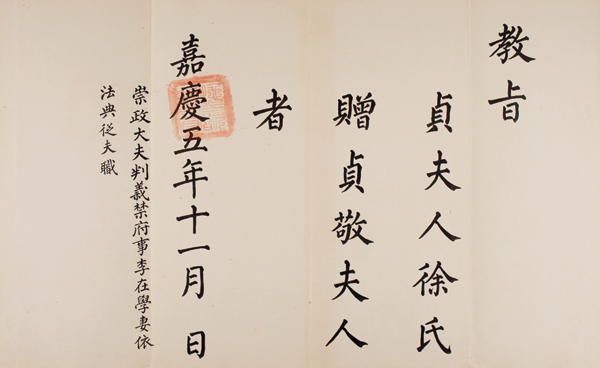 教旨
貞夫人徐氏
贈貞敬夫人
者
嘉慶五年十一月 日
崇政大夫判義禁府事李在學妻依
法典從夫職